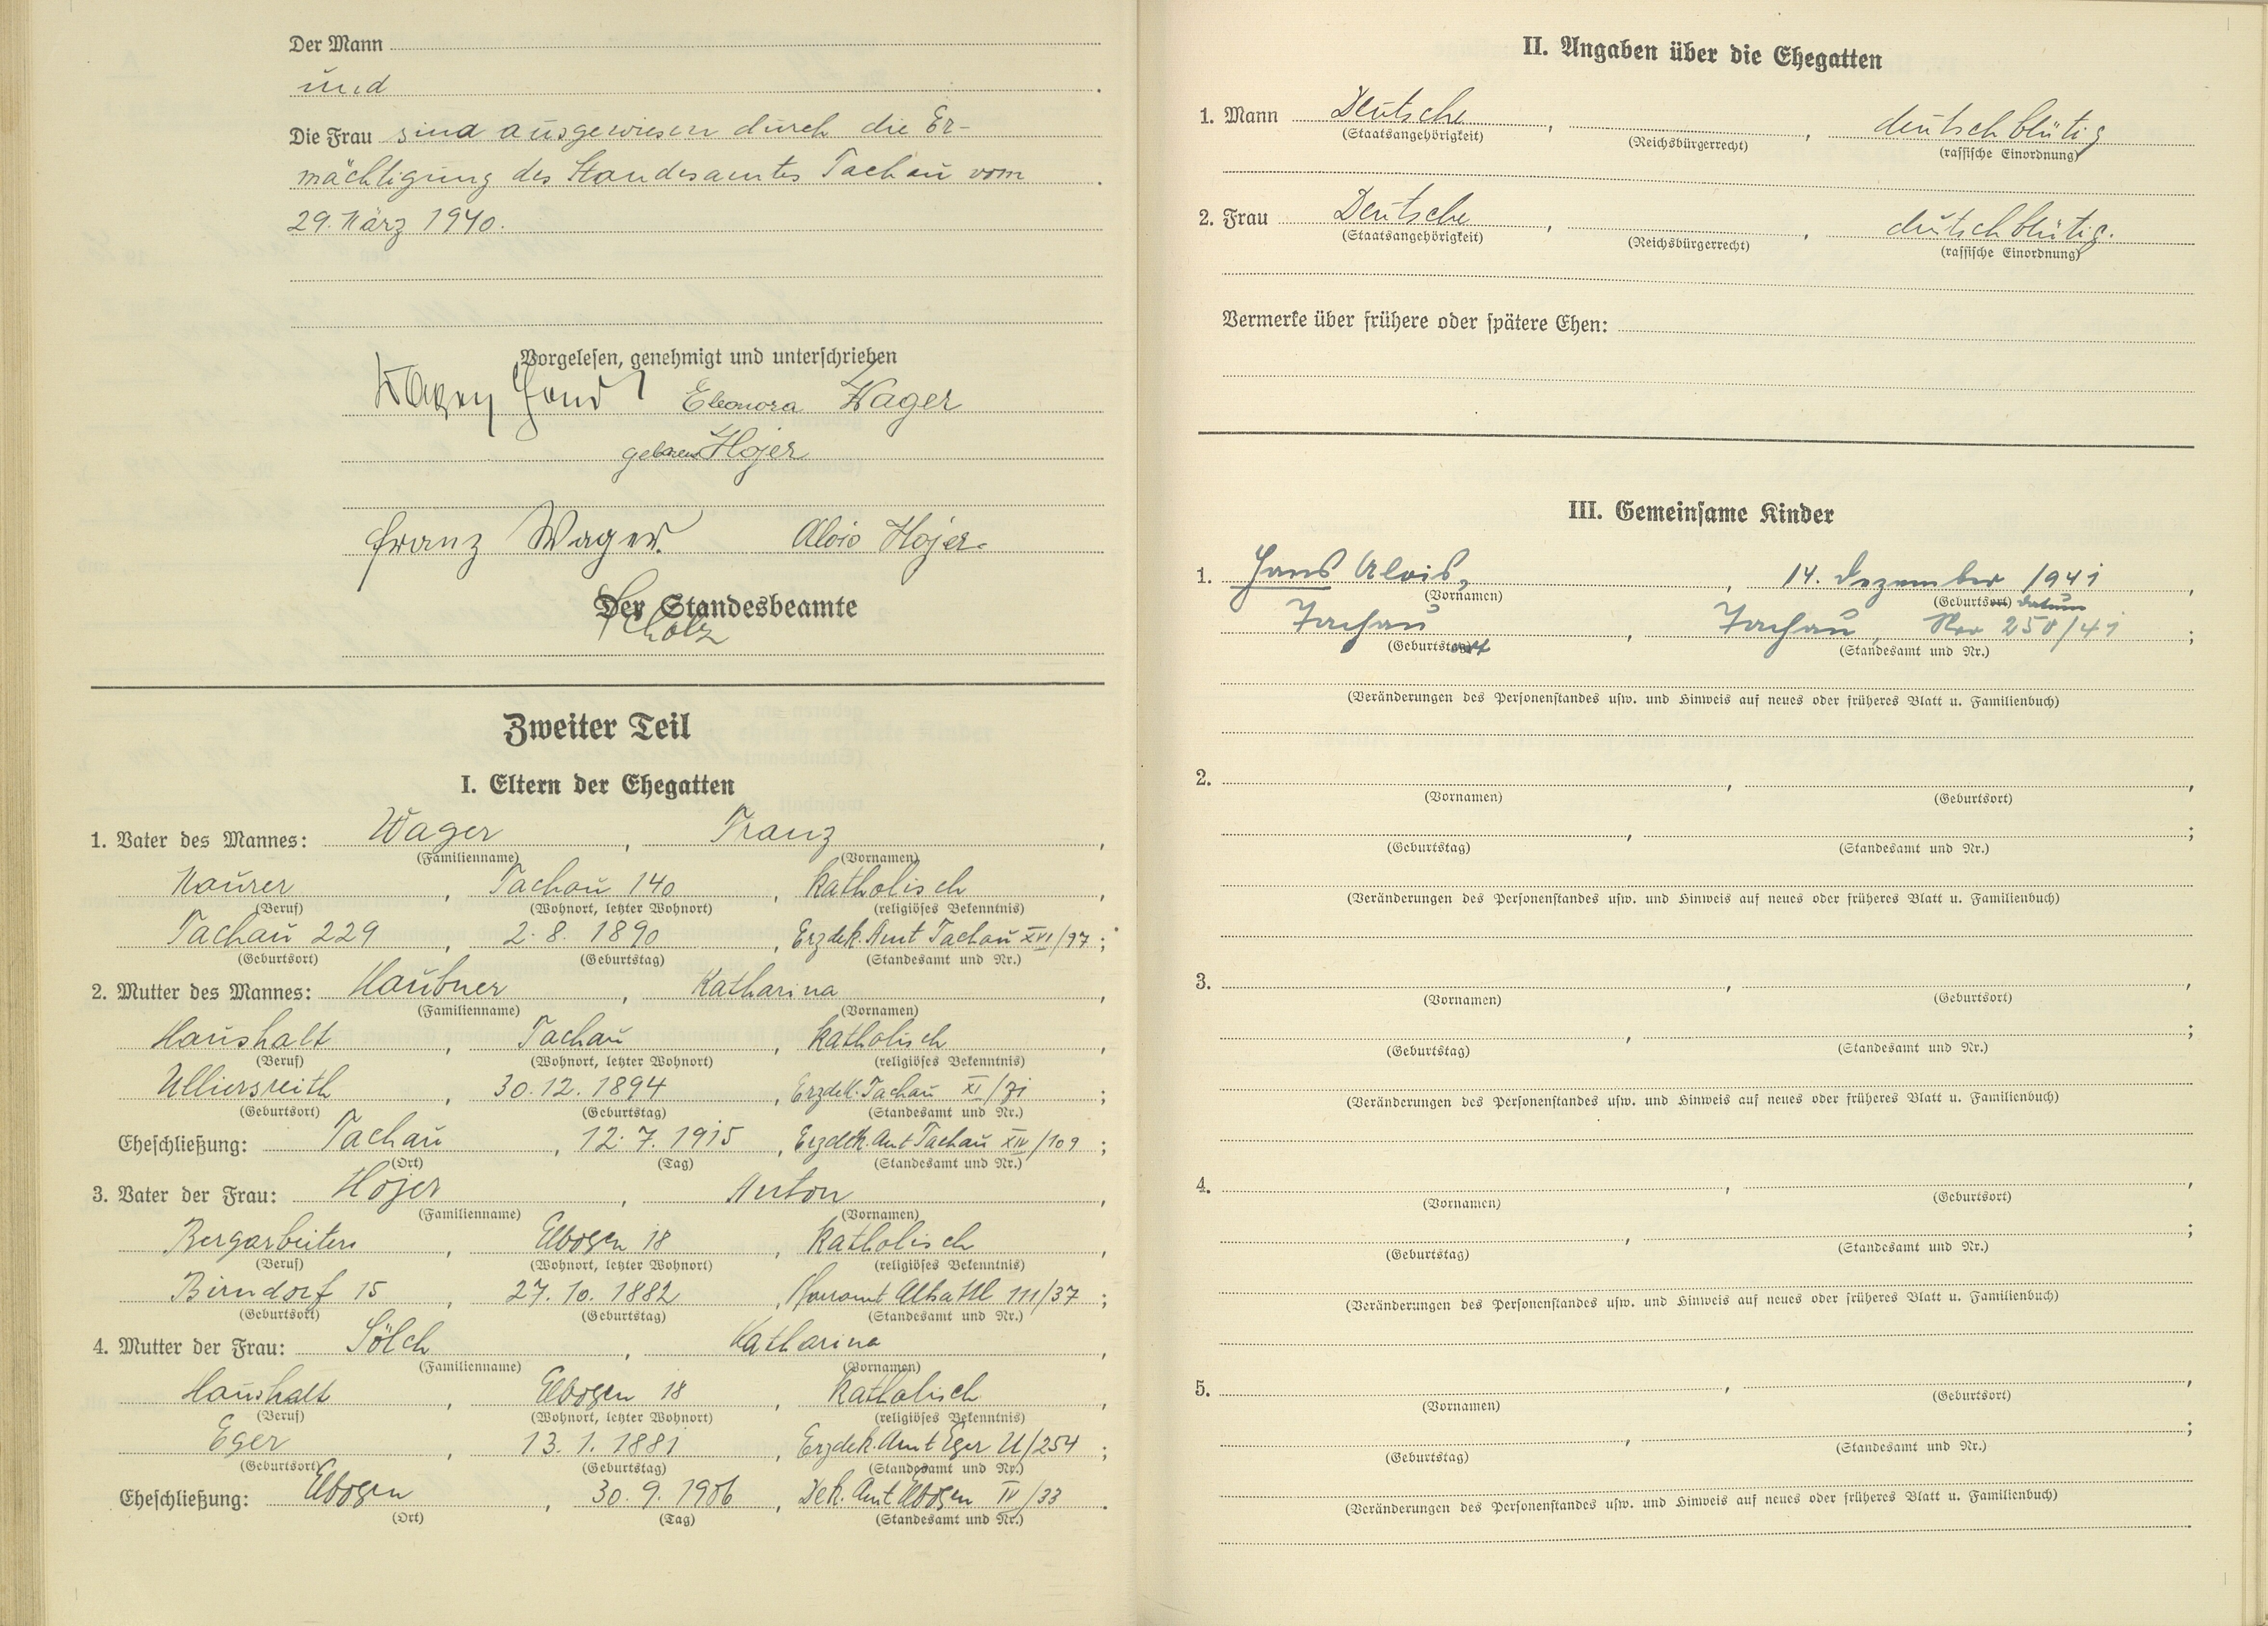 Der Mann
und
Die Frau sind ausgewiesen durch die Er-
mächtigung des Standesamtes Tachau vom
29. März 1940.
Vorgelesen, genehmigt und unterschrieben
Eleonora Wager
geborene Hojer
Franz Wager. Alois Hojer.
Der Standesbeamte
Scholz
Zweiter Teil
I. Eltern der Ehegatten
1. Vater des Mannes: Wager, Franz,
(Familienname) (Vornamen)
Maurer, Tachau 140, katholisch,
(Beruf) (Wohnort, letzter Wohnort) (religiöses Bekenntnis)
Tachau 229, 2. 8. 1890, Erzdek. Amt Tachau XVI/97;
(Geburtsort) (Geburtstag) (Standesamt und Nr.)
2. Mutter des Mannes: Haubner, Katharina,
(Familienname) (Vornamen)
Haushalt, Tachau, katholisch,
(Beruf) (Wohnort, letzter Wohnort) (religiöses Bekenntnis)
Ulliersreith, 30. 12. 1894, Erzdek. Tachau XI/71;
(Geburtsort) (Geburtstag) (Standesamt und Nr.)
Eheschließung: Tachau, 12. 7. 1915, Erzdek. Amt Tachau XIV/109;
(Ort) (Tag) (Standesamt und Nr.)
3. Vater der Frau: Hojer, Anton,
(Familienname) (Vornamen)
Bergarbeiter, Elbogen 18, katholisch,
(Beruf) (Wohnort, letzter Wohnort) (religiöses Bekenntnis)
Birndorf 15, 27. 10. 1882, Pfarramt III/37;
(Geburtsort) (Geburtstag) (Standesamt und Nr.)
4. Mutter der Frau: Sölch, Katharina,
(Familienname) (Vornamen)
Haushalt, Elbogen 18, katholisch,
(Beruf) (Wohnort, letzter Wohnort) (religiöses Bekenntnis)
Eger, 13. 1. 1881, Erzdek. Amt Eger U/254;
(Geburtsort) (Geburtstag) (Standesamt und Nr.)
Eheschließung: Elbogen, 30. 9. 1906, Dek. Amt Elbogen IV/33.
(Ort) (Tag) (Standesamt und Nr.)
II. Angaben über die Ehegatten
1. Mann Deutsche, , deutschblütig
(Staatsangehörigkeit) (Reichsbürgerrecht) (rassische Einordnung)
2. Frau Deutsche, , deutschblütig.
(Staatsangehörigkeit) (Reichsbürgerrecht) (rassische Einordnung)
Vermerke über frühere oder spätere Ehen:
III. Gemeinsame Kinder
1. Hans Alois, , 14. Dezember 1941,
(Vornamen) (Geburtsort) datum
Tachau, Tachau, Nr. 250/41;
(Geburtstag) ort (Standesamt und Nr.)
(Veränderungen des Personenstandes usw. und Hinweis auf neues oder früheres Blatt u. Familienbuch)
2. , ,
(Vornamen) (Geburtsort)
, ;
(Geburtstag) (Standesamt und Nr.)
(Veränderungen des Personenstandes usw. und Hinweis auf neues oder früheres Blatt u. Familienbuch)
3. , ,
(Vornamen) (Geburtsort)
, ;
(Geburtstag) (Standesamt und Nr.)
(Veränderungen des Personenstandes usw. und Hinweis auf neues oder früheres Blatt u. Familienbuch)
4. , ,
(Vornamen) (Geburtsort)
, ;
(Geburtstag) (Standesamt und Nr.)
(Veränderungen des Personenstandes usw. und Hinweis auf neues oder früheres Blatt u. Familienbuch)
5. , ,
(Vornamen) (Geburtsort)
, ;
(Geburtstag) (Standesamt und Nr.)
(Veränderungen des Personenstandes usw. und Hinweis auf neues oder früheres Blatt u. Familienbuch)